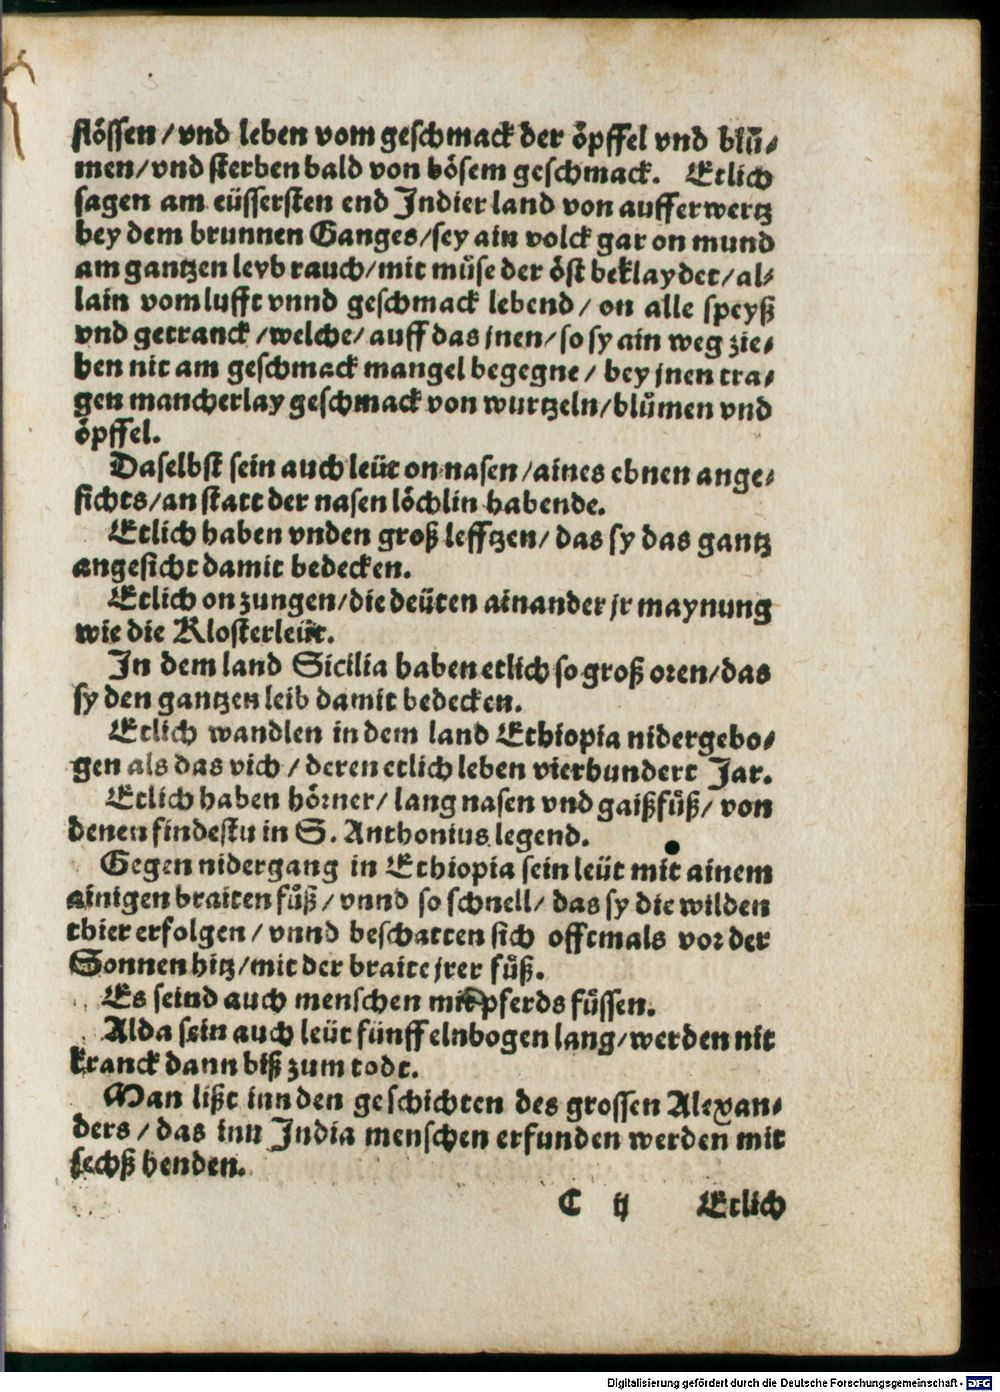 flössen / vnd leben vom geschmack der öpffel vnd blů-
men/vnd sterben bald von bösem geschmack. Etlich
sagen am eüssersten end Jndier land von aufferwertz
bey dem brunnen Ganges/sey ain volck gar on mund
am gantzen leyb rauch/mit můse der öst beklaydet/al-
lain vom lufft vnnd geschmack lebend / on alle speyß
vnd getranck /welche/ auff das jnen/ so sy ain weg zie-
hen nit am geschmack mangel begegne / bey jnen tra-
gen mancherlay geschmack von wurtzeln/blůmen vnd
öpffel.
Daselbst sein auch leüt on nasen /aines ebnen ange-
sichts/an statt der nasen löchlin habende.
Etlich haben vnden groß lefftzen/ das sy das gantz
angesicht damit bedecken.
Etlich on zungen/die deüten ainander jr maynung
wie die Klosterleüt.
Jn dem land Sicilia haben etlich so groß oren/das
sy den gantzen leib damit bedecken.
Etlich wandlen in dem land Ethiopia nidergebo-
gen als das vich / deren etlich leben vierhundert Jar.
Etlich haben hörner/ lang nasen vnd gaißfůß/ von
denen findestu in S. Anthonius legend.
Gegen nidergang in Ethiopia sein leüt mit ainem
ainigen braiten fůß / vnnd so schnell/ das sy die wilden
thier erfolgen / vnnd beschatten sich offtmals vor der
Sonnen hitz/mit der braite jrer fůß.
Es seind auch menschen mit pferds füssen.
Alda sein auch leüt fünff elnbogen lang/werden nit
kranck dann biß zum todt.
Man lißt inn den geschichten des grossen Alexan-
ders / das inn Jndia menschen erfunden werden mit
sechß henden.
C ij Etlich
Digitalisierung gefördert durch die Deutsche Forschungsgemeinschaft - DFG